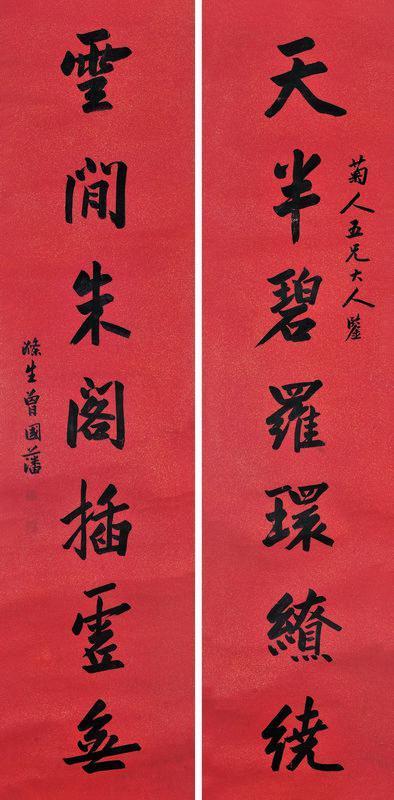 菊人五兄大人鑒
天半碧羅環繚繞
雲閒朱閣插虛無
滌生曾國藩